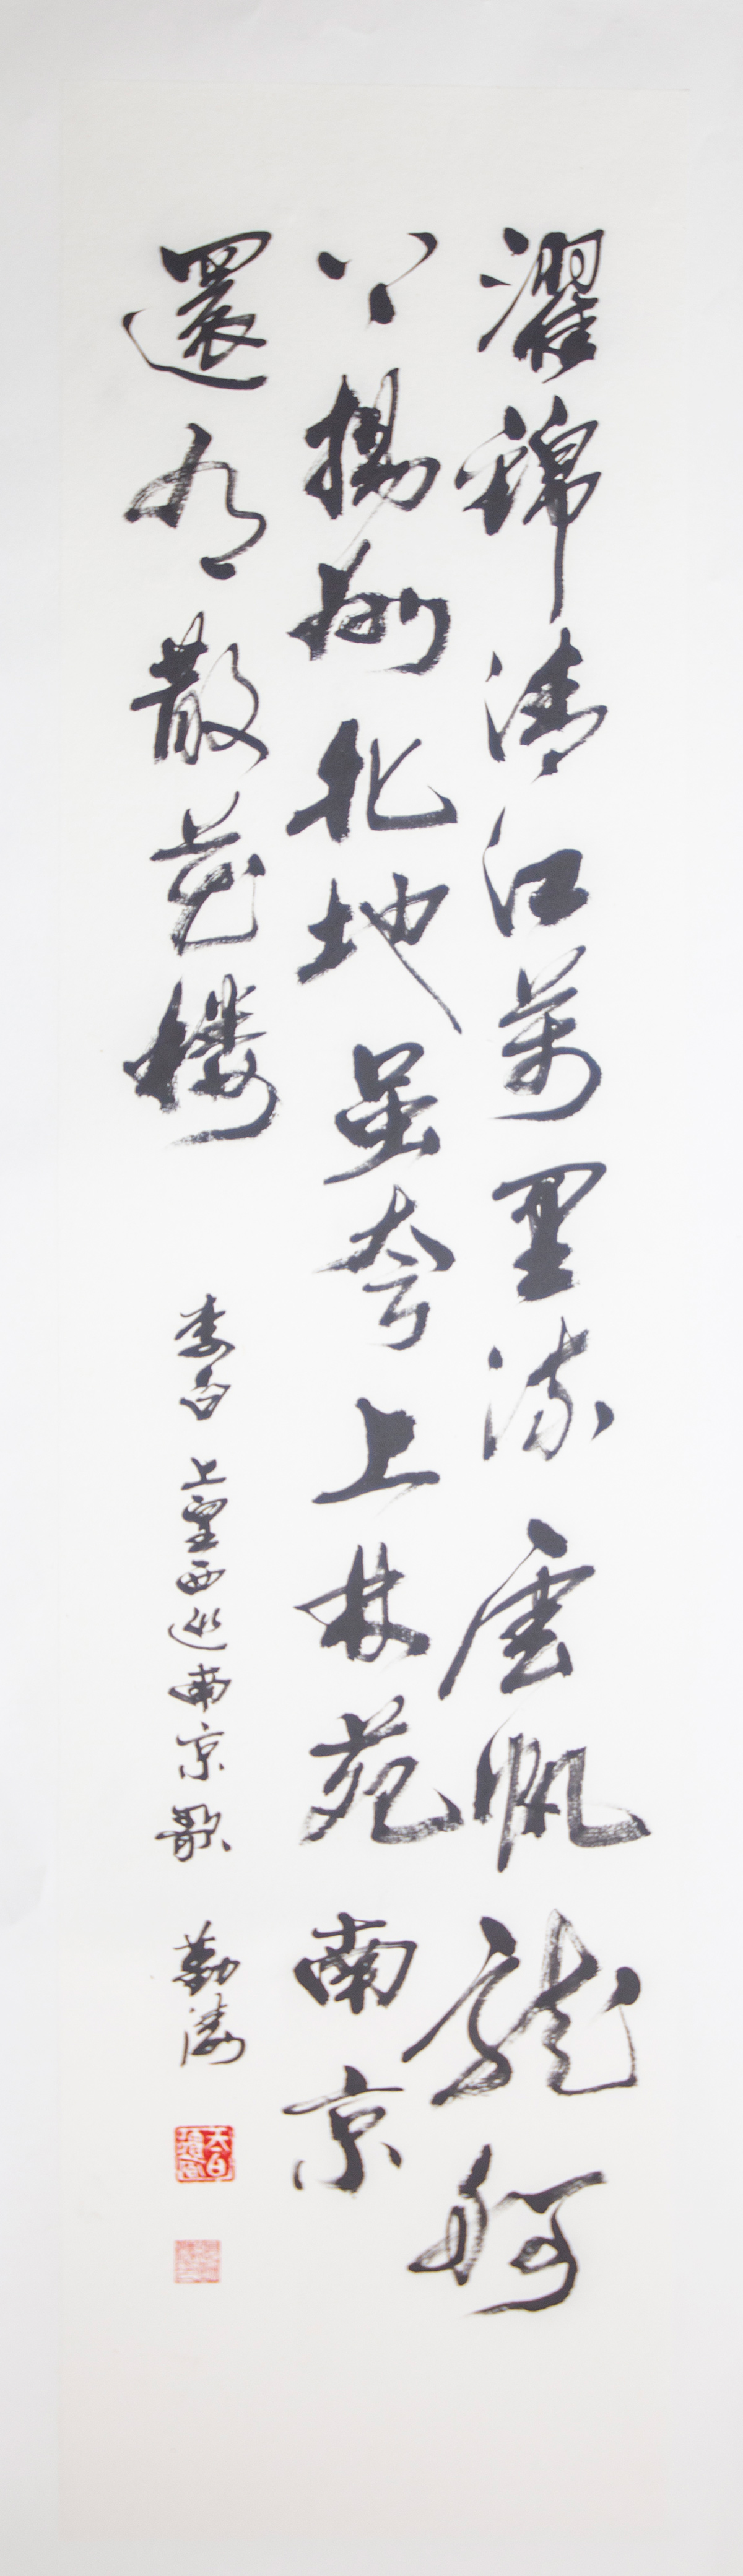 濯錦清江萬里流雲帆龍舸
下揚州北地虽夸上林苑南京
還有散花樓 李白 上皇西巡南京歌